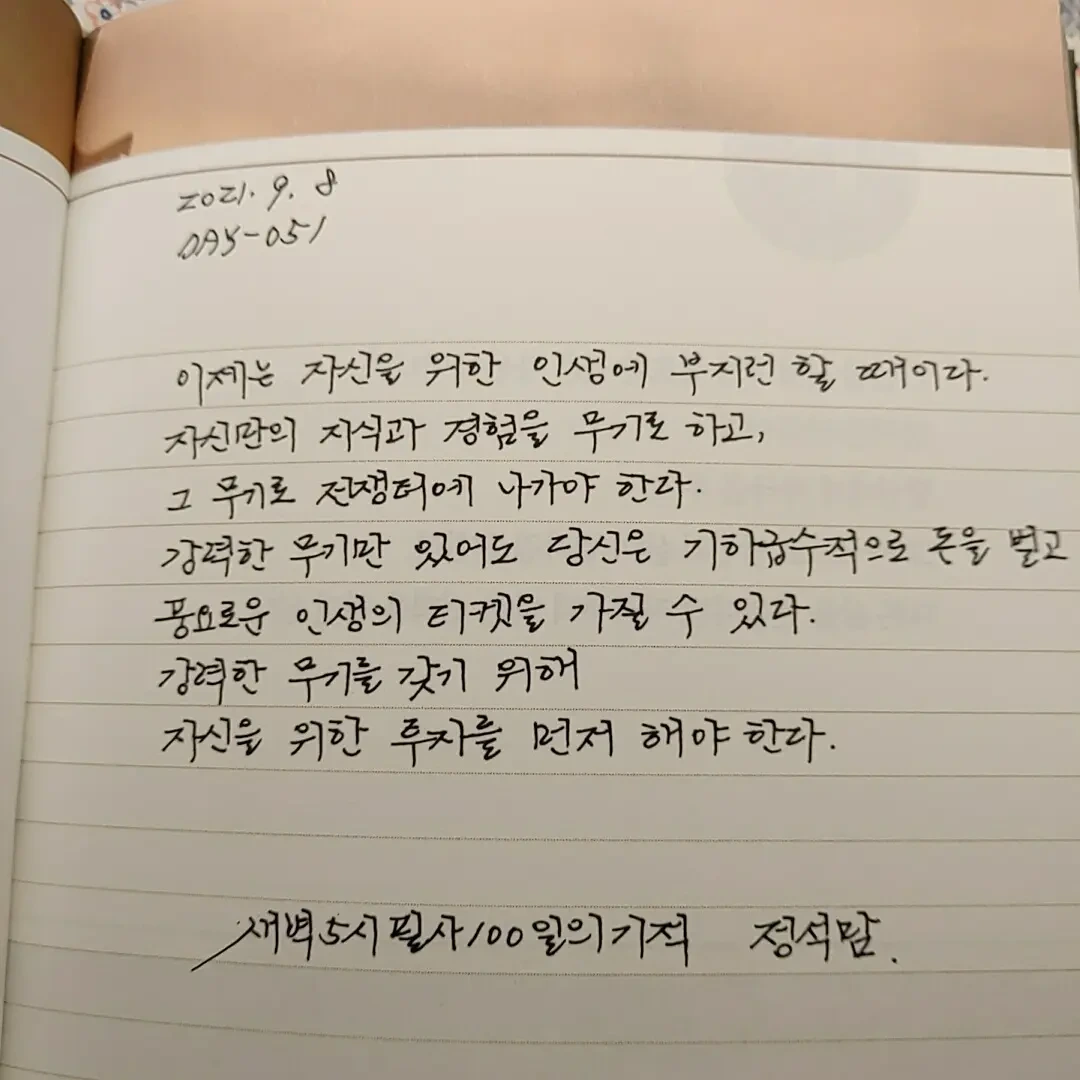 2021. 9. 8
DAY-051
이제는 자신을 위한 인생에 부지런 할 때이다.
자신만의 지식과 경험을 무기로 하고,
그 무기로 전쟁터에 나가야 한다.
강력한 무기만 있어도 당신은 기하급수적으로 돈을 벌고
풍요로운 인생의 티켓을 가질 수 있다.
강력한 무기를 갖기 위해
자신을 위한 투자를 먼저 해야 한다.
새벽5시필사100일의기적 정석맘.